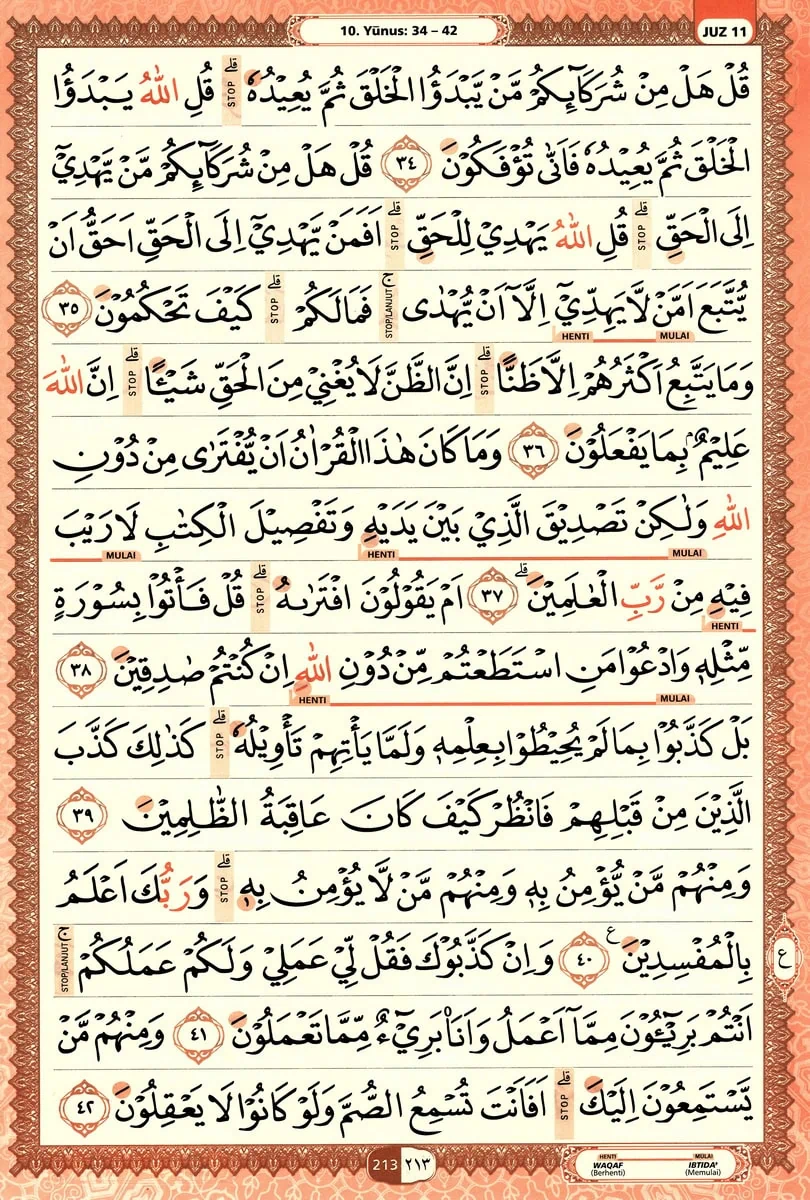 10. Yūnus: 34 – 42
JUZ 11
قُلْ هَلْ مِنْ شُرَكَاۤىِٕكُمْ مَّنْ يَّبْدَؤُا الْخَلْقَ ثُمَّ يُعِيْدُهٗ ۗ STOP قُلِ اللّٰهُ يَبْدَؤُا
الْخَلْقَ ثُمَّ يُعِيْدُهٗ فَاَنّٰى تُؤْفَكُوْنَ ٣٤ قُلْ هَلْ مِنْ شُرَكَاۤىِٕكُمْ مَّنْ يَّهْدِيْٓ
اِلَى الْحَقِّ ۗ STOP قُلِ اللّٰهُ يَهْدِيْ لِلْحَقِّ ۗ STOP اَفَمَنْ يَّهْدِيْٓ اِلَى الْحَقِّ اَحَقُّ اَنْ
يُّتَّبَعَ اَمَّنْ لَّا يَهِدِّيْٓ اِلَّآ اَنْ يُّهْدٰى ۚ STOP/LANJUT فَمَا لَكُمْ ۗ STOP كَيْفَ تَحْكُمُوْنَ ٣٥
MULAI HENTI
وَمَا يَتَّبِعُ اَكْثَرُهُمْ اِلَّا ظَنًّا ۗ STOP اِنَّ الظَّنَّ لَا يُغْنِيْ مِنَ الْحَقِّ شَيْـًٔا ۗ STOP اِنَّ اللّٰهَ
عَلِيْمٌ ۢ بِمَا يَفْعَلُوْنَ ٣٦ وَمَا كَانَ هٰذَا الْقُرْاٰنُ اَنْ يُّفْتَرٰى مِنْ دُوْنِ
اللّٰهِ وَلٰكِنْ تَصْدِيْقَ الَّذِيْ بَيْنَ يَدَيْهِ وَتَفْصِيْلَ الْكِتٰبِ لَا رَيْبَ
MULAI HENTI MULAI
فِيْهِ مِنْ رَّبِّ الْعٰلَمِيْنَ ۗ ٣٧ اَمْ يَقُوْلُوْنَ افْتَرٰىهُ ۗ STOP قُلْ فَأْتُوْا بِسُوْرَةٍ
HENTI
مِّثْلِهٖ وَادْعُوْا مَنِ اسْتَطَعْتُمْ مِّنْ دُوْنِ اللّٰهِ اِنْ كُنْتُمْ صٰدِقِيْنَ ٣٨
MULAI HENTI
بَلْ كَذَّبُوْا بِمَا لَمْ يُحِيْطُوْا بِعِلْمِهٖ وَلَمَّا يَأْتِهِمْ تَأْوِيْلُهٗ ۗ STOP كَذٰلِكَ كَذَّبَ
الَّذِيْنَ مِنْ قَبْلِهِمْ فَانْظُرْ كَيْفَ كَانَ عَاقِبَةُ الظّٰلِمِيْنَ ٣٩
وَمِنْهُمْ مَّنْ يُّؤْمِنُ بِهٖ وَمِنْهُمْ مَّنْ لَّا يُؤْمِنُ بِهٖ ۗ STOP وَرَبُّكَ اَعْلَمُ
بِالْمُفْسِدِيْنَ ࣖ ٤٠ وَاِنْ كَذَّبُوْكَ فَقُلْ لِّيْ عَمَلِيْ وَلَكُمْ عَمَلُكُمْ ۚ STOP/LANJUT
ع
اَنْتُمْ بَرِيْۤـُٔوْنَ مِمَّآ اَعْمَلُ وَاَنَا۠ بَرِيْۤءٌ مِّمَّا تَعْمَلُوْنَ ٤١ وَمِنْهُمْ مَّنْ
يَّسْتَمِعُوْنَ اِلَيْكَ ۗ STOP اَفَاَنْتَ تُسْمِعُ الصُّمَّ وَلَوْ كَانُوْا لَا يَعْقِلُوْنَ ٤٢
213 ٢١٣
HENTI MULAI
WAQAF IBTIDA'
(Berhenti) (Memulai)